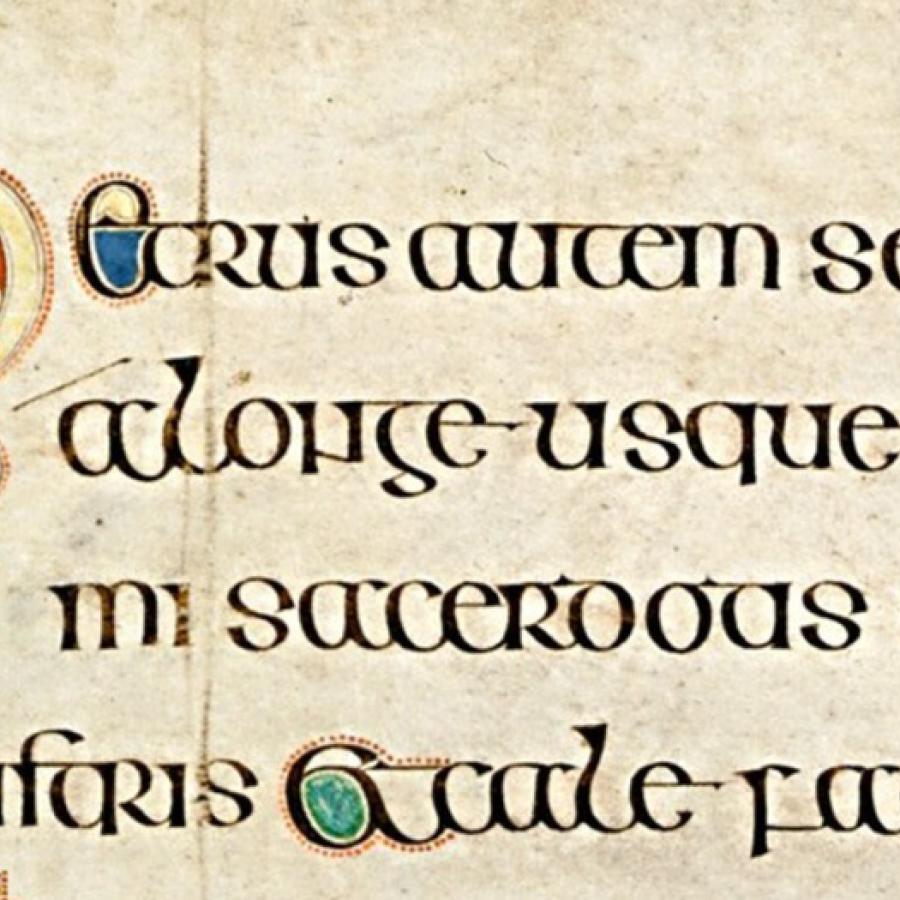 etrus autem se
alonge usque
mi sacerdotis
istris Et cale fa